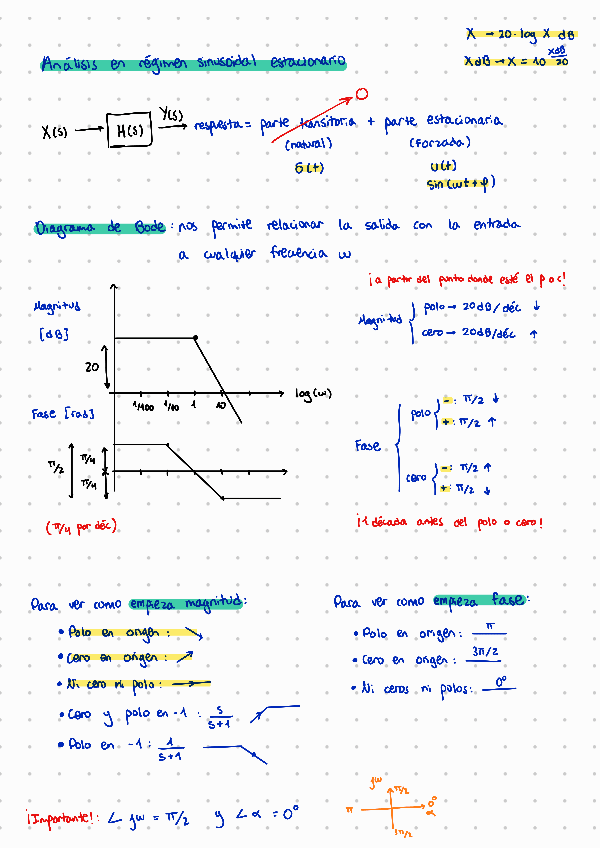 X → 20·log X dB
XdB → X = 10^(XdB/20)
Análisis en régimen sinusoidal estacionario
X(s) → H(s) Y(s) → respuesta = parte transitoria + parte estacionaria
0
(natural) (forzada)
δ(t) u(t)
sin(ωt + φ)
Diagrama de Bode: nos permite relacionar la salida con la entrada
a cualquier frecuencia ω
¡a partir del punto donde esté el p o c!
Magnitud
[dB]
20
1/100 1/10 1 10
log(ω)
Magnitud { polo → 20dB/déc ↓
cero → 20dB/déc ↑
Fase [rad]
π/2 π/4
π/4
(π/4 por déc)
Fase { polo { - : π/2 ↓
+ : π/2 ↑
cero { - : π/2 ↑
+ : π/2 ↓
¡1 década antes del polo o cero!
Para ver como empieza magnitud:
• Polo en origen:
• Cero en origen:
• Ni cero ni polo:
• Cero y polo en -1: s/(s+1)
• Polo en -1: 1/(s+1)
Para ver como empieza fase:
• Polo en origen: π
• Cero en origen: 3π/2
• Ni ceros ni polos: 0°
¡Importante!: ∠ jω = π/2 y ∠ α = 0°
jω
π/2
π 0°
α
3π/2